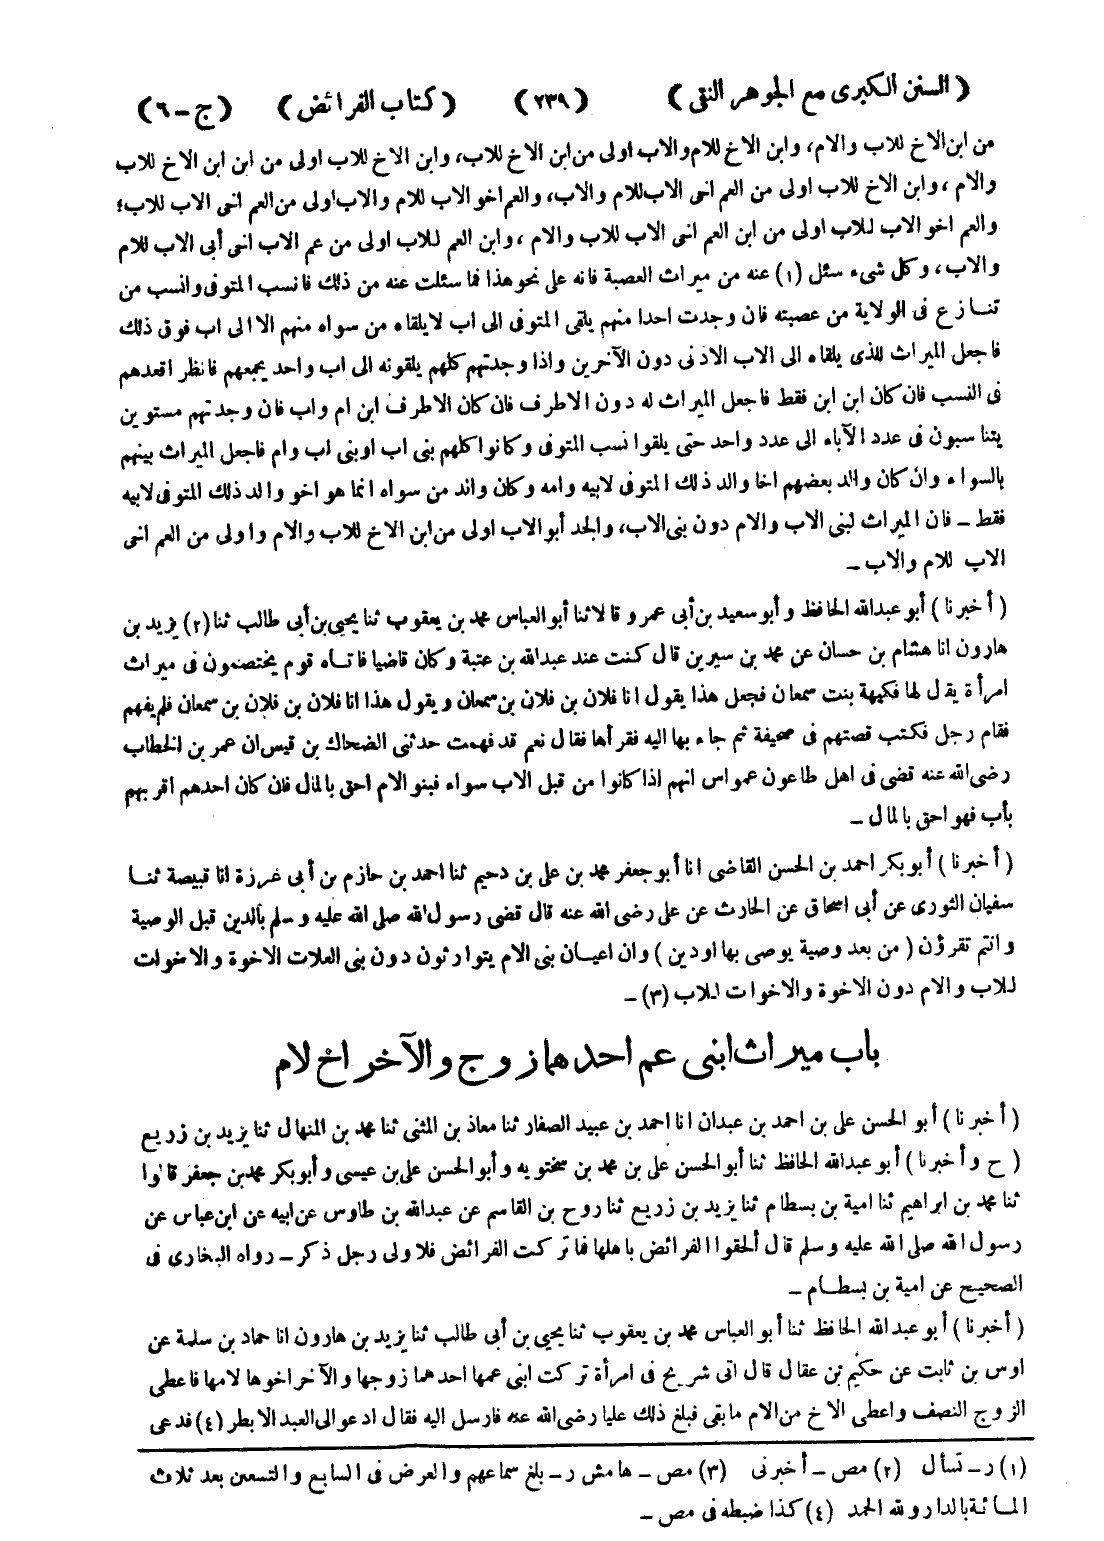 (السنن الكبرى مع الجوهر النقى) (٢٣٩) (كتاب الفرائض) (ج-٦)
من ابن الاخ للاب والام، وابن الاخ للام والاب اولى من ابن الاخ للاب، وابن الاخ للاب اولى من ابن ابن الاخ للاب
والام، وابن الاخ للاب اولى من العم اخى الاب للام والاب، والعم اخو الاب للام والاب اولى من العم اخى الاب للاب؛
والعم اخو الاب للاب اولى من ابن العم اخى الاب للاب والام، وابن العم للاب اولى من عم الاب اخى أبى الاب للام
والاب، وكل شىء سئل (١) عنه من ميراث العصبة فانه على نحو هذا فما سئلت عنه من ذلك فانسب المتوفى وانسب من
تنازع فى الولاية من عصبته فان وجدت احدا منهم يلقى المتوفى الى اب لا يلقاه من سواه منهم الا الى اب فوق ذلك
فاجعل الميراث للذى يلقاه الى الاب الادنى دون الآخرين واذا وجدتهم كلهم يلقونه الى اب واحد يجمعهم فانظر اقعدهم
فى النسب فان كان ابن ابن فقط فاجعل الميراث له دون الاطرف فان كان الاطرف ابن ام واب فان وجدتهم مستوين
يتناسبون فى عدد الآباء الى عدد واحد حتى يلقوا نسب المتوفى وكانوا كلهم بنى اب او بنى اب وام فاجعل الميراث بينهم
بالسواء وان كان والد بعضهم اخا والد ذلك المتوفى لابيه وامه وكان والد من سواه انما هو اخو والد ذلك المتوفى لابيه
فقط - فان الميراث لبنى الاب والام دون بنى الاب، والجد أبو الاب اولى من ابن الاخ للاب والام واولى من العم اخى
الاب للام والاب -
(أخبرنا) أبو عبدالله الحافظ وأبو سعيد بن أبى عمرو قالا ثنا أبو العباس محمد بن يعقوب ثنا يحيى بن أبى طالب ثنا (٢) يزيد بن
هارون انا هشام بن حسان عن محمد بن سيرين قال كنت عند عبدالله بن عتبة وكان قاضيا فاتاه قوم يختصمون فى ميراث
امرأة يقال لها فكيهة بنت سمعان فجعل هذا يقول انا فلان بن فلان بن سمعان ويقول هذا انا فلان بن فلان بن سمعان فلم يفهم
فقام رجل فكتب قصتهم فى صحيفة ثم جاء بها اليه فقرأها فقال نعم قد فهمت حدثنى الضحاك بن قيس ان عمر بن الخطاب
رضى الله عنه قضى فى اهل طاعون عمواس انهم اذا كانوا من قبل الاب سواء فبنو الام احق بالمال فان كان احدهم اقربهم
بأب فهو احق بالمال -
(أخبرنا) أبو بكر احمد بن الحسن القاضى انا أبو جعفر محمد بن على بن دحيم ثنا احمد بن حازم بن أبى غرزة انا قبيصة ثنا
سفيان الثورى عن أبى اسحاق عن الحارث عن على رضى الله عنه قال قضى رسول الله صلى الله عليه وسلم بالدين قبل الوصية
وانتم تقرؤن (من بعد وصية يوصى بها او دين) وان اعيان بنى الام يتوارثون دون بنى العلات الاخوة والاخوات
للاب والام دون الاخوة والاخوات للاب (٣) -
باب ميراث ابنى عم احدهما زوج والآخر اخ لام
(أخبرنا) أبو الحسن على بن احمد بن عبدان انا احمد بن عبيد الصفار ثنا معاذ بن المثنى ثنا محمد بن المنهال ثنا يزيد بن زريع
(ح وأخبرنا) أبو عبدالله الحافظ ثنا أبو الحسن على بن محمد بن سختويه وأبو الحسن على بن عيسى وأبو بكر محمد بن جعفر قالوا
ثنا محمد بن ابراهيم ثنا امية بن بسطام ثنا يزيد بن زريع ثنا روح بن القاسم عن عبدالله بن طاوس عن ابيه عن ابن عباس عن
رسول الله صلى الله عليه وسلم قال ألحقوا الفرائض باهلها فما تركت الفرائض فلاولى رجل ذكر - رواه البخارى فى
الصحيح عن امية بن بسطام -
(أخبرنا) أبو عبدالله الحافظ ثنا أبو العباس محمد بن يعقوب ثنا يحيى بن أبى طالب ثنا يزيد بن هارون انا حماد بن سلمة عن
اوس بن ثابت عن حكيم بن عقال قال اتى شريح فى امرأة تركت ابنى عمها احدهما زوجها والآخر اخوها لامها فاعطى
الزوج النصف واعطى الاخ من الام ما بقى فبلغ ذلك عليا رضى الله عنه فارسل اليه فقال ادعوا لى العبد الابظر (٤) فدعى
(١) ر - تسأل (٢) مص - أخبرنى (٣) مص - هامش ر - بلغ سماعهم والعرض فى السابع والتسعين بعد ثلاث
المائة بالدار ولله الحمد (٤) كذا ضبطه فى مص -